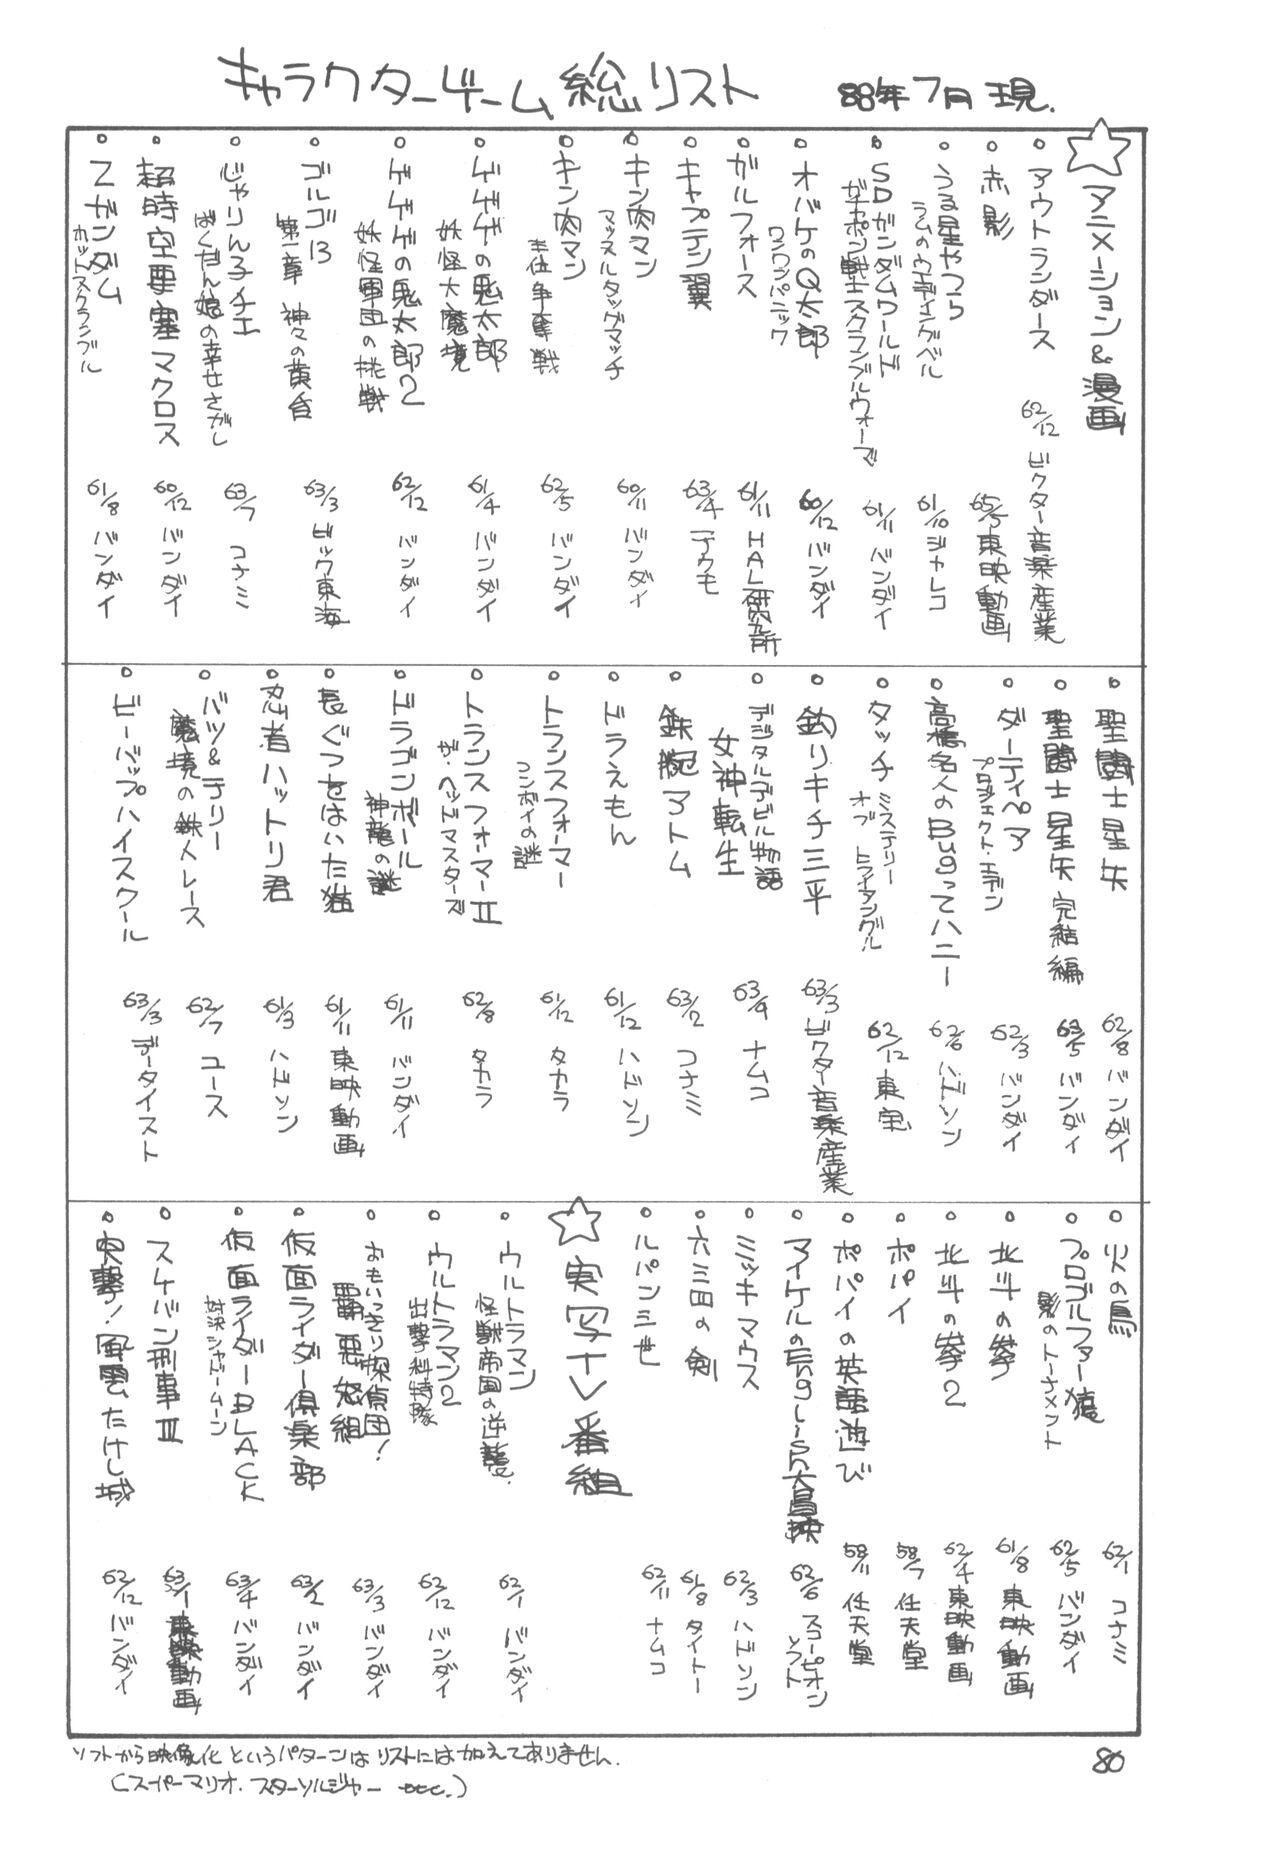 キャラクターゲーム総リスト 88年7月現.
☆アニメーション&漫画
アウトランダース 62/12 ビクター音楽産業
赤影 65/5 東映動画
うる星やつら ラムのウエディングベル 61/10 ジャレコ
SDガンダムワールド ガチャポン戦士スクランブルウォーズ 61/11 バンダイ
オバケのQ太郎 ワンワンパニック 60/12 バンダイ
ガルフォース 61/11 HAL研究所
キャプテン翼 63/4 テクモ
キン肉マン マッスルタッグマッチ 60/11 バンダイ
キン肉マン キン仕争奪戦 62/5 バンダイ
ゲゲゲの鬼太郎 妖怪大魔境 61/4 バンダイ
ゲゲゲの鬼太郎2 妖怪軍団の挑戦 62/12 バンダイ
ゴルゴ13 第一章 神々の黄昏 63/3 ビック東海
じゃりん子チエ ばくだん娘の幸せさがし 63/7 コナミ
超時空要塞マクロス 60/12 バンダイ
Zガンダム ホットスクランブル 61/8 バンダイ
聖闘士星矢 62/8 バンダイ
聖闘士星矢 完結編 63/5 バンダイ
ダーティペア プロジェクト・エデン 62/3 バンダイ
高橋名人のBugってハニー 62/6 ハドソン
タッチ ミステリー オブ トライアングル 62/12 東宝
釣りキチ三平 63/3 ビクター音楽産業
デジタルデビル物語 女神転生 63/9 ナムコ
鉄腕アトム 63/2 コナミ
ドラえもん 61/12 ハドソン
トランスフォーマー コンボイの謎 61/12 タカラ
トランスフォーマーII ザ・ヘッドマスターズ 62/8 タカラ
ドラゴンボール 神龍の謎 61/11 バンダイ
長ぐつをはいた猫 61/11 東映動画
忍者ハットリ君 61/3 ハドソン
バツ&テリー 魔境の鉄人レース 62/7 ユース
ビーバップハイスクール 63/3 データイスト
火の鳥 62/1 コナミ
プロゴルファー猿 影のトーナメント 62/5 バンダイ
北斗の拳 61/8 東映動画
北斗の拳2 62/4 東映動画
ポパイ 58/7 任天堂
ポパイの英語遊び 58/11 任天堂
マイケルのEnglish大冒険 62/6 スコーピオンソフト
ミッキマウス 62/3 ハドソン
六三四の剣 61/8 タイトー
ルパン三世 62/11 ナムコ
☆実写TV番組
ウルトラマン 怪獣帝国の逆襲. 62/1 バンダイ
ウルトラマン2 出撃科特隊 62/12 バンダイ
おもいっきり探偵団! 覇悪怒組 63/3 バンダイ
仮面ライダー倶楽部 63/2 バンダイ
仮面ライダーBLACK 対決シャドームーン 63/4 バンダイ
スケバン刑事III 63/1 東映動画
突撃!風雲たけし城 62/12 バンダイ
ソフトから映像化というパターンはリストには加えてありません.
(スーパーマリオ.スターソルジャー etc.)
80